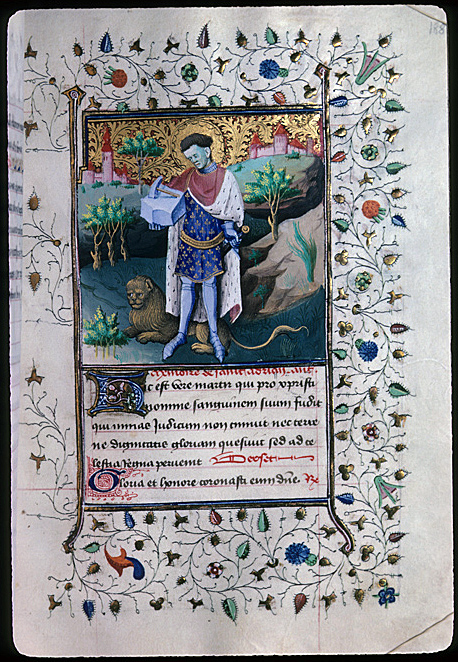 Memoire de saint adrian. ant.
Hic est vere martir qui pro xpristi
nomine sanguinem suum fudit
qui minas Judicum non timuit nec terre
ne dignitatis gloriam quesivit sed ad ce
lestia Regna pervenit Verset
Gloria et honore coronasti eum dne. Rx